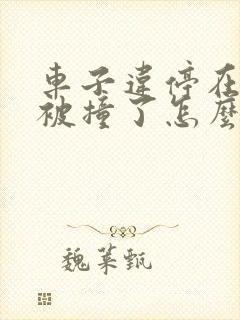 車子違停在
被撞了怎麼
魏菜甄